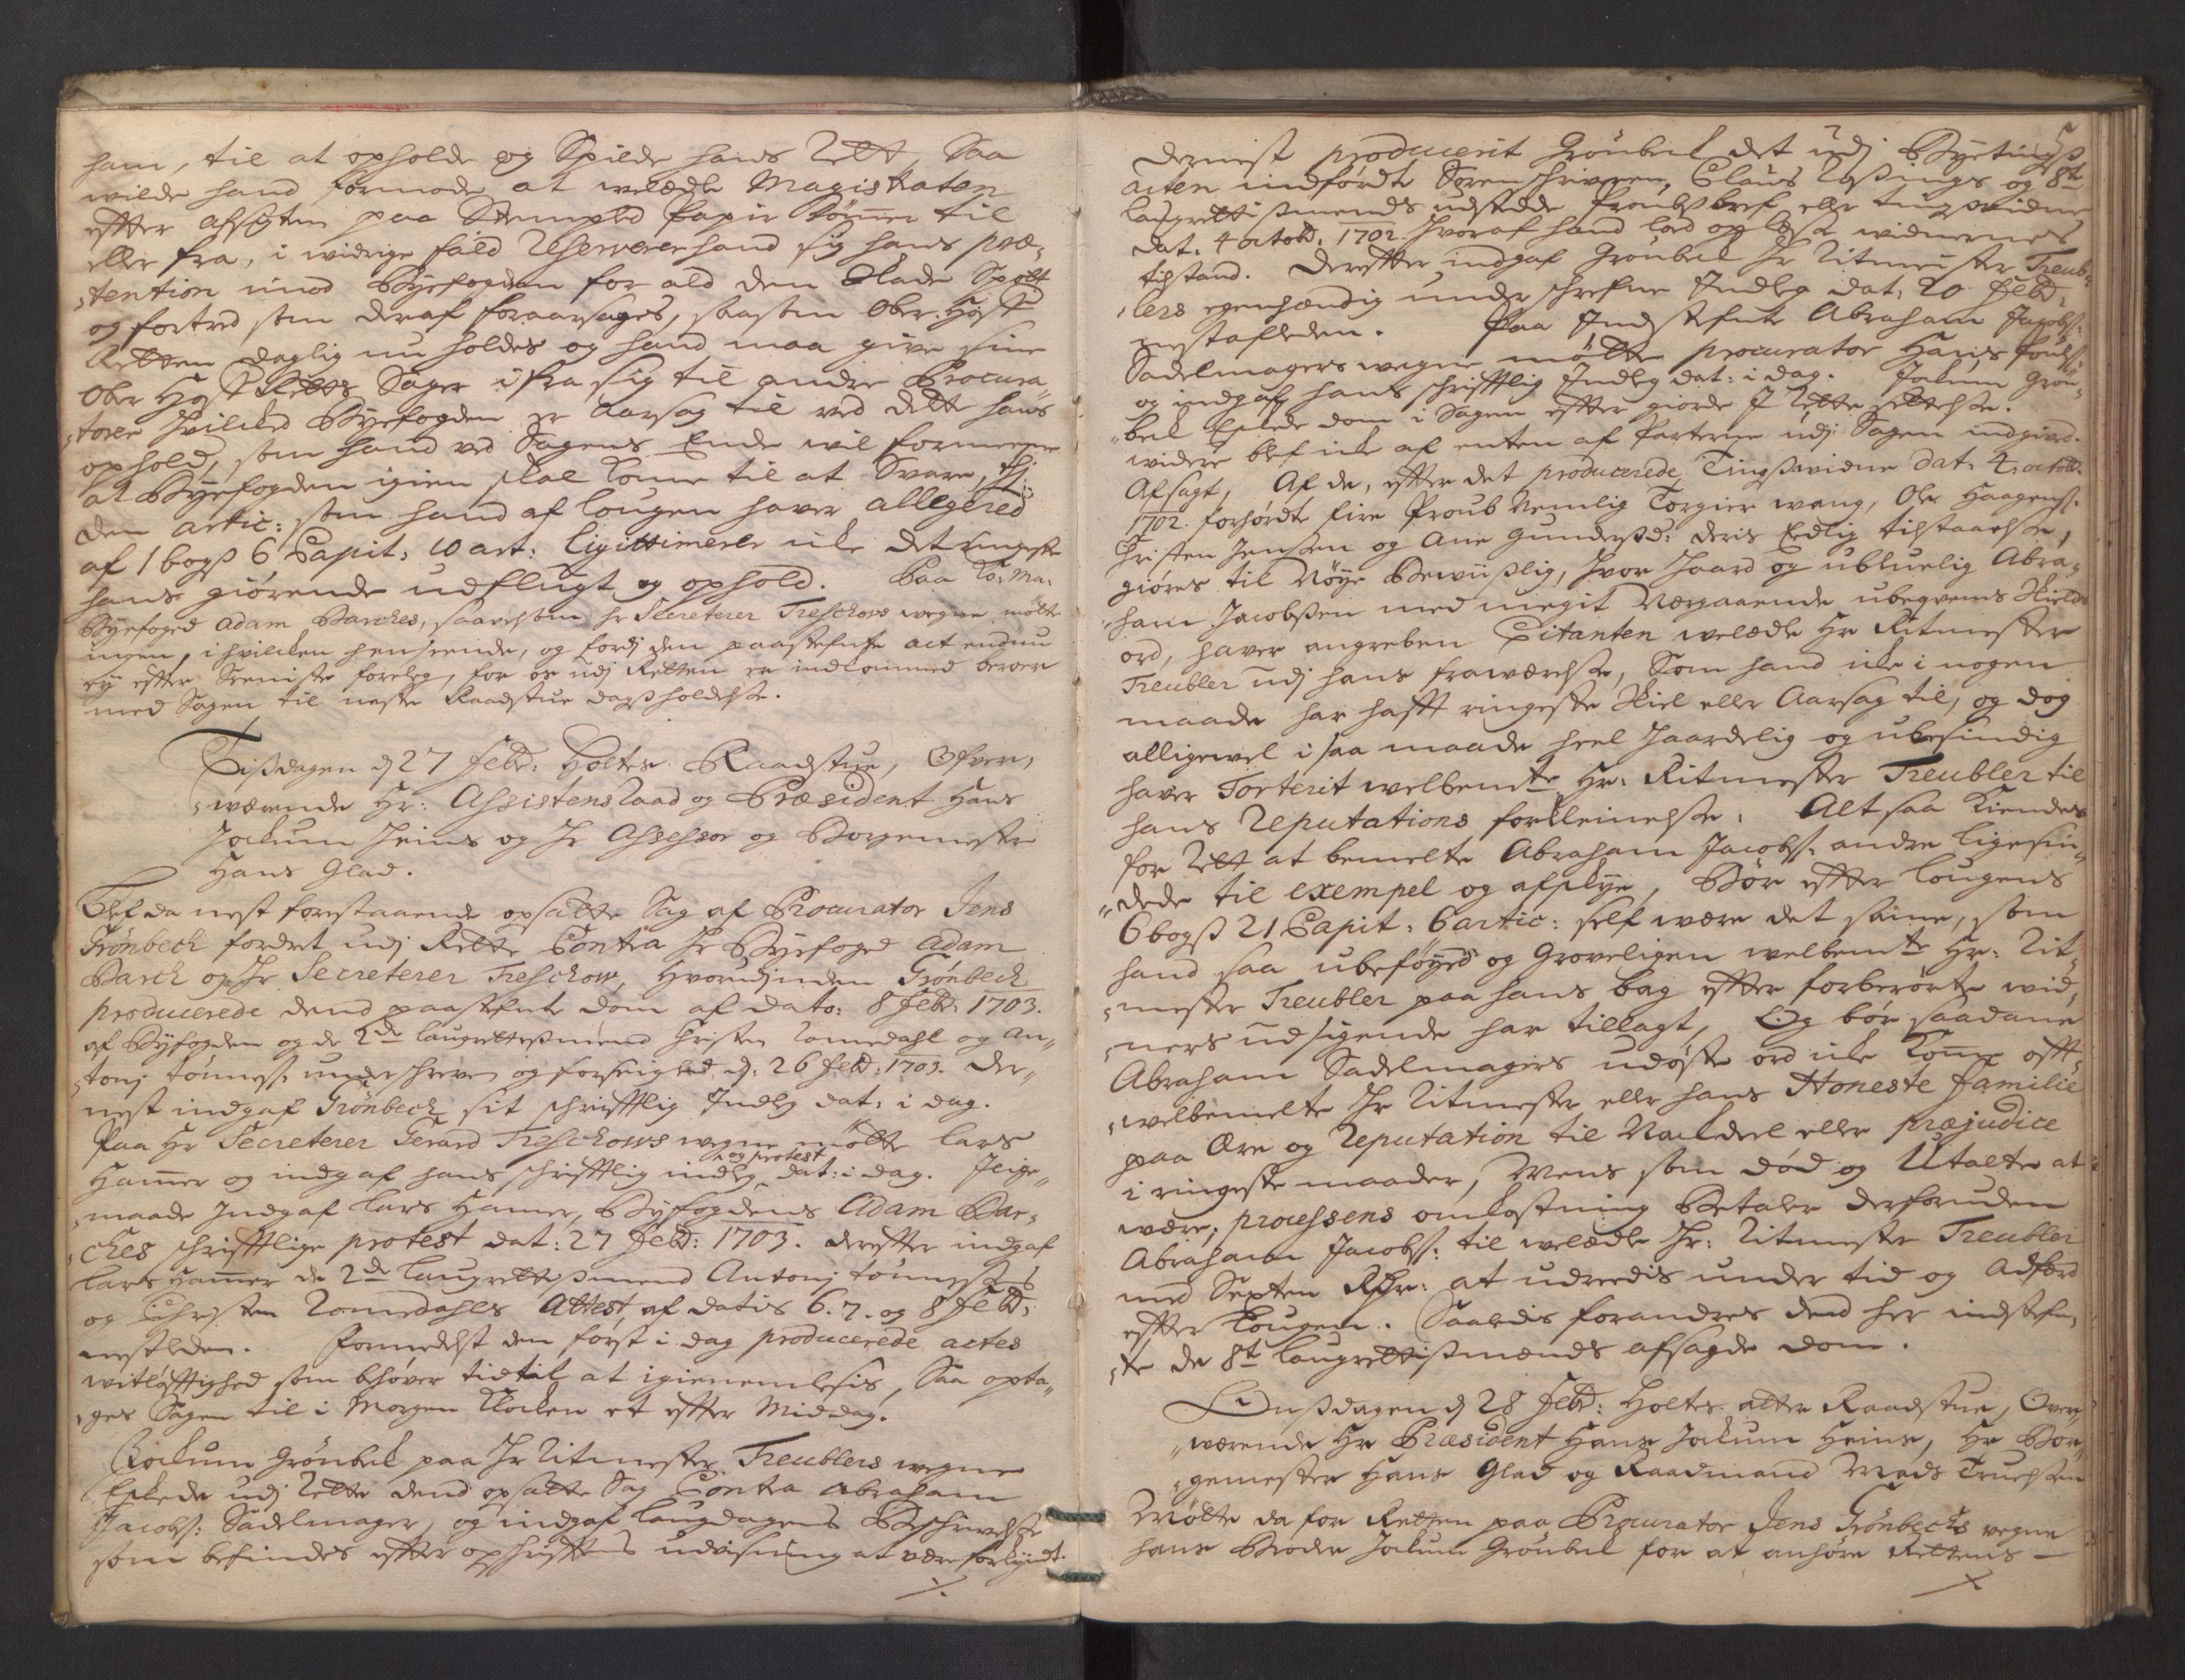 ham, til at opholde og Spilde hans Rett, Saa
wilde hand formode at welædle Magistraten
effter afsigten paa Stempled Papir kommer til
eller fra, i widrige fald Reserverer hand sig hans præ-
tention imod Byefogden for ald den Skade Spilt
og fortred som deraf foraarsages, saasom Ober-Hoff
Retten daglig nu holdes og hand maa give sine
Ober Hoff Retts Sager ifra sig til andre Procura-
torer Hvilcked Byefogden er Aarsag til ved dette hans
ophold, som hand ved Sagens Ende wil formeene
at Byefogden igien skal komme til at Svare, thj
den artic: som hand af lougen haver allegered
af 1 bogs 6 Capit: 10 art: ligittimerer icke det ringeste
hans giørende udflugt og ophold. Paa Ko: Ma:
Byefoged Adam Barches, saavelsom Hr Secreterer Treschows wegne mötte
ingen, i hvilcken henseende, og fordj den paastefnte act endnu
ey effter Seeniste foreleg, for os udj Retten er indkommed beroer
med Sagen til neste Raadstue dags holdelse.
Tisdagen d 27 Febr: Holtes Raadstue, Ofver-
wærende Hr: Assistens Raad og Præsident Hans
Jockum Heins og Hr Assessor og Borgemester
Hans Glad.
Blef da nest forestaaende opsatte Sag af Procurator Jens
Grönbech fordret udj Rette Contra Hr Byefoged Adam
Barch og Hr Secreterer Treschow, Hvorudjinden Grönbech
producerede dend paastefnte dom af dato: 8 Febr: 1703.
af Byfogden og de 2de laugrettesmend Christen Romedahl og An-
tonj Tönness: underskreven og forseigled d: 26 Febr: 1703. Der-
nest indgaf Grönbech sit schrifftlig Indleg dat: i dag.
Paa Hr Secreterer Gerard Treschows wegne mötte Lars
Hamer og indgaf hans schrifftlig indleg og protest dat: i dag. Ilige-
maade Indgaf Lars Hamer, Byfogdens Adam Bar-
ches schrifftlige protest dat: 27 Febr: 1703. dereffter indgaf
Lars Hammer de 2de laugrettesmend Antonj Tönnesens
og Christen Romedahls Attest, af datis 6. 7. og 8 Febr:
nestleden. formedelst den først i dag producerede actes
witløfftighed som behøver tid til at igienemlesis, Saa opta-
ges Sagen til i Morgen Klocken et effter Middag.
Jockum Grönbech paa Hr Ritmester Treublers wegne
Eskede udj Rette dend opsatte Sag Contra Abraham
Jacobs: Sadelmager, og indgaf laugdagens Beschrivelse
som befindes effter opschrifftens udvisning at være forkyndt.
5
Dernest producerit Grönbech det udj Byetings
acten indførdte Sorenschriveren, Claus Röyings og 8te
laugrettismends udstedde Prouls bref eller tingswidne
dat. 4 octobr. 1702. hvoraf hand lod op læse widnernes
tilstand. Dereffter indgaf Grönbech Hr Ritmester Treub-
lers egenhændig underschrefne Indleg dat. 20 Febr:
nestafleden. Paa Indstefnte Abraham Jacobs:
Sadelmagers wegne mötte procurator Hans Pouls:
og indgaf hans schrifftlig Indleg dat: i dag. Jockum Grön-
bech Eskede dom i Sagen effter giorde I Rette settelse.
widere blef icke af enten af Parterne udj Sagen indgived.
Afsagt, Af de, effter det producerede Tingswidne dat. 4 octobr.
1702. forhørdte fire Proub Nemlig Torgier wang, Ole Haagens:
Christen Jensen og Ane Gundersd: deris Edlig tilstaaelse,
giøres til Nöye Bewiislig, hvor Haard og ubluelig Abra-
ham Jacobsen med megit Nærgaaende ubeqvems Skields
ord, haver angreben Citanten welædle Hr Ritmester
Treubler udj hans frawærelse, Som hand icke i nogen
maade har hafft ringeste Skiel eller Aarsag til, og dog
alligewel i saa maade heel Haardelig og ubesindig
haver Torterit welbemte Hr: Ritmester Treubler til
hans Reputations forkleinelse: Alt saa Kiendes
for Rett at bemelte Abraham Jacobs: andre ligesin-
dede til exempel og afskye, Bør effter lougens
6 bogs 21 Capit: 6 artic: self være det samme, som
hand saa ubeføyed og Groveligen welbemte Hr: Rit-
mester Treubler paa hans bag effter forberørte wid-
ners udsigende har tillagt, Og bør saadane
Abraham Sadelmagers udøste ord icke komme offt-
welbemelte Hr Ritmester eller hans Honeste familie
paa Ære og Reputation til Nackdeel eller præjudice
i ringeste maader, Mens som død og Utalte at
være, processens omkostning Betaler derforuden
Abraham Jacobs: til welædle Hr: Ritmester Treubler
med Septen Rdr: at udredis under tid og Adferd
effter Lougen. Saaledis forandres dend her indstefn-
te de 8te laugrettismænds afsagde dom.
Onsdagen d 28 Febr: Holtes atter Raadstue, Over-
værende Hr Præsident Hans Jockum Heins, Hr Bor-
gemester Hans Glad og Raadmand Mads Truelsen
Mötte da for Retten paa Procurator Jens Grönbechs vegne
hans Broder Jockum Grönbech for at anhøre Rettens